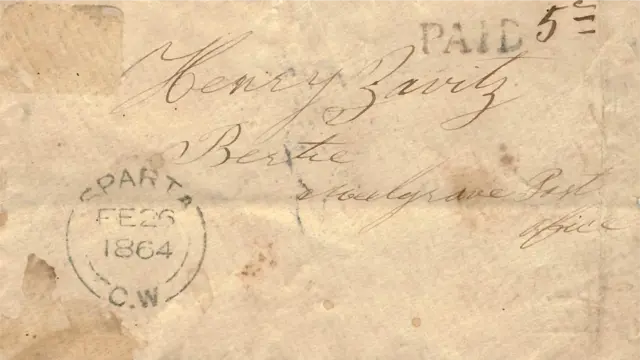 PAID 5c
Henry Zavitz
Bertie
Post
office
SPARTA
FE 26
1864
C.W